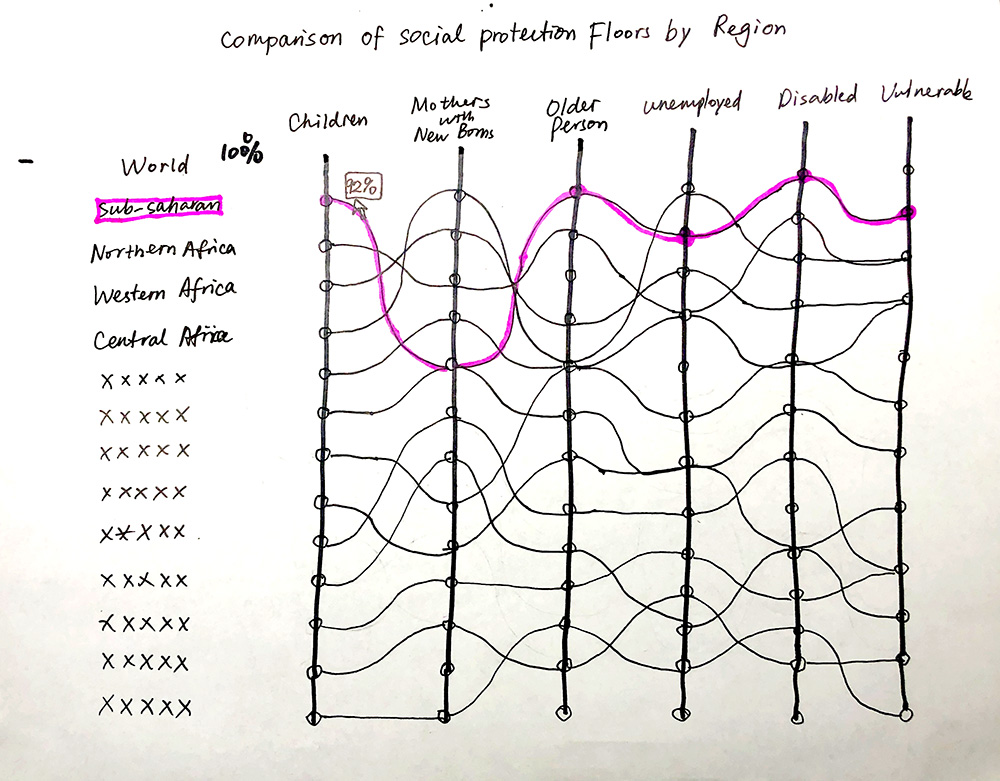 Comparison of social protection Floors by Region
Children
Mothers
with
New Borns
Older
Person
unemployed
Disabled
Vulnerable
100%
92%
World
sub-saharan
Northern Africa
Western Africa
Central Africa
x x x x x
x x x x x
x x x x x
x x x x x
x x x x x
x x x x x
x x x x x
x x x x x
x x x x x